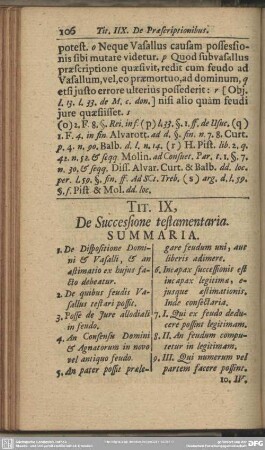 106 Tit. IIX. De Præscriptionibus.
potest. o Neque Vasallus causam possessio-
nis sibi mutare videtur. p Quod subvasallus
præscriptione quæsivit, redit cum feudo ad
Vasallum, vel, eo præmortuo, ad dominum, q
etsi justo errore ulterius possederit: r [Obj.
l. 13. l. 33. de M. c. don.] nisi alio quàm feudi
jure quæsiisset. s
(o) 2. F. 8. §. Rei. inf. (p) l. 33. §. 1. ff. de Usuc. (q)
1. F. 4. in fin. Alvarott. ad d. §. fin. n. 7. 8. Curt.
p. 4. n. 90. Balb. d. l. n. 14. (r) H. Pist. lib. 2. q.
42. n. 52. & seqq. Molin. ad Consuet. Par. t. 1. §. 7.
n. 30. & seqq. Diss. Alvar. Curt. & Balb. dd. loc.
per. l. 59. §. fin. ff. Ad SCt. Treb. (s) arg. d. l. 59.
§. f. Pist. & Mol. dd. loc.
TIT. IX,
De Successione testamentaria.
SUMMARIA.
1. De Dispositione Domi-
ni & Vasalli, & an
æstimatio ex hujus fa-
cto debeatur.
2. De quibus feudis Va-
sallus testari possit.
3. Posse de Jure allodiali
in feudo.
4. An Consensu Domini
& Agnatorum in novo
vel antiquo feudo.
5. An pater possit præle-
gare feudum uni, aut
liberis adimere.
6. Incapax successionis est
incapax legitimæ, e-
jusque æstimationis.
Inde consectaria.
7. I. Qui ex feudo dedu-
cere possint legitimam.
8. II. An feudum compu-
tetur in legitimam.
9. III. Qui numerum vel
partem facere possint.
10. IV.